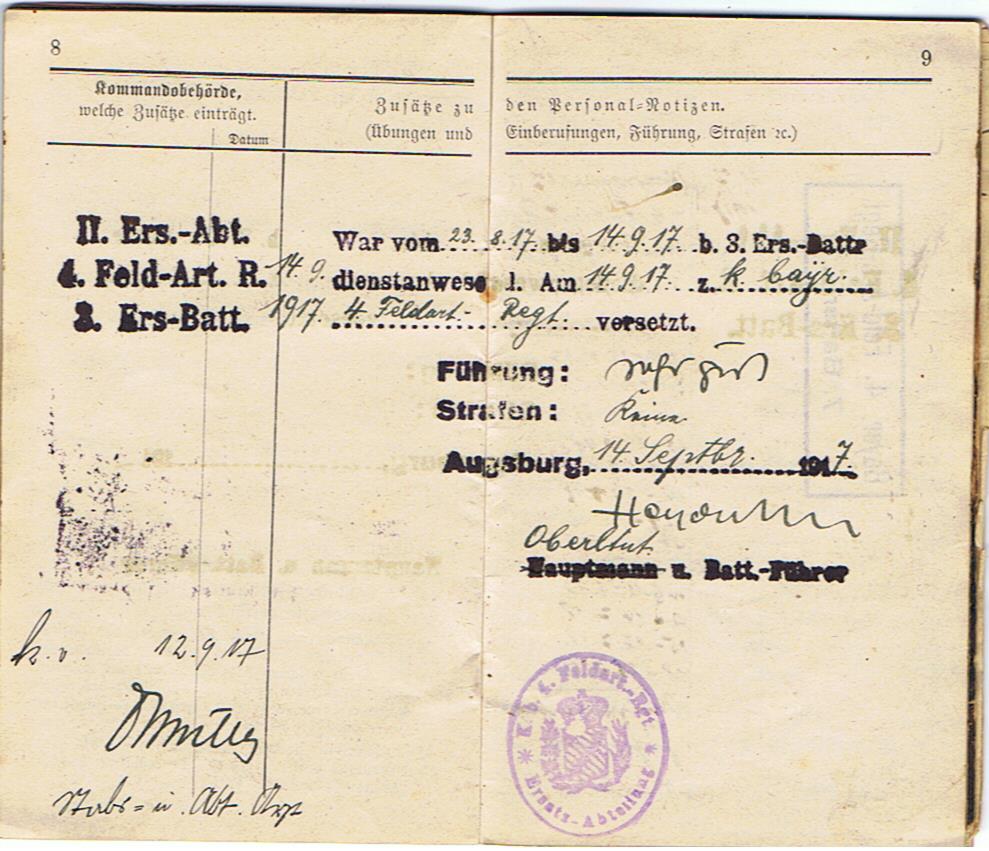 8
9
Kommandobehörde,
welche Zusätze einträgt.
Datum
Zusätze zu den Personal-Notizen.
(Übungen und Einberufungen, Führung, Strafen ꝛc.)
II. Ers.-Abt.
4. Feld-Art. R.
3. Ers-Batt.
14.9.
1917.
War vom 23.8.17. bis 14.9.17. b. 3. Ers.-Battr
dienstanwesend. Am 14.9.17. z. k. bayr.
4. Feldart.- Regt. versetzt.
Führung: sehr gut
Strafen: Keine
Augsburg, 14. Septbr. 1917.
Oberltnt.
Hauptmann u. Batt.-Führer
k.v. 12.9.17
Stabs- u. Abt. Arzt
K. b. 4. Feldart.-Rgt.
Ersatz-Abteilung